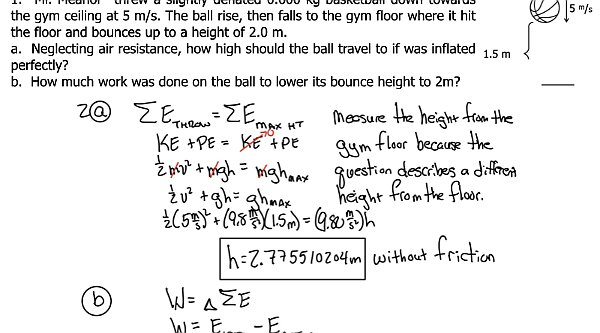 the gym ceiling at 5 m/s. The ball rise, then falls to the gym floor where it hit
the floor and bounces up to a height of 2.0 m.
a. Neglecting air resistance, how high should the ball travel to if was inflated
perfectly?
b. How much work was done on the ball to lower its bounce height to 2m?
5 m/s
1.5 m
2(a) ΣE THROW = ΣE MAX HT
KE + PE = KE→0 + PE
½mv² + mgh = mgh MAX
½v² + gh = gh MAX
½(5 m/s)² + (9.8 m/s²)(1.5m) = (9.80 m/s²)h
measure the height from the
gym floor because the
question describes a different
height from the floor.
h=2.775510204m without friction
(b) W = ΔΣE
W = E
- E